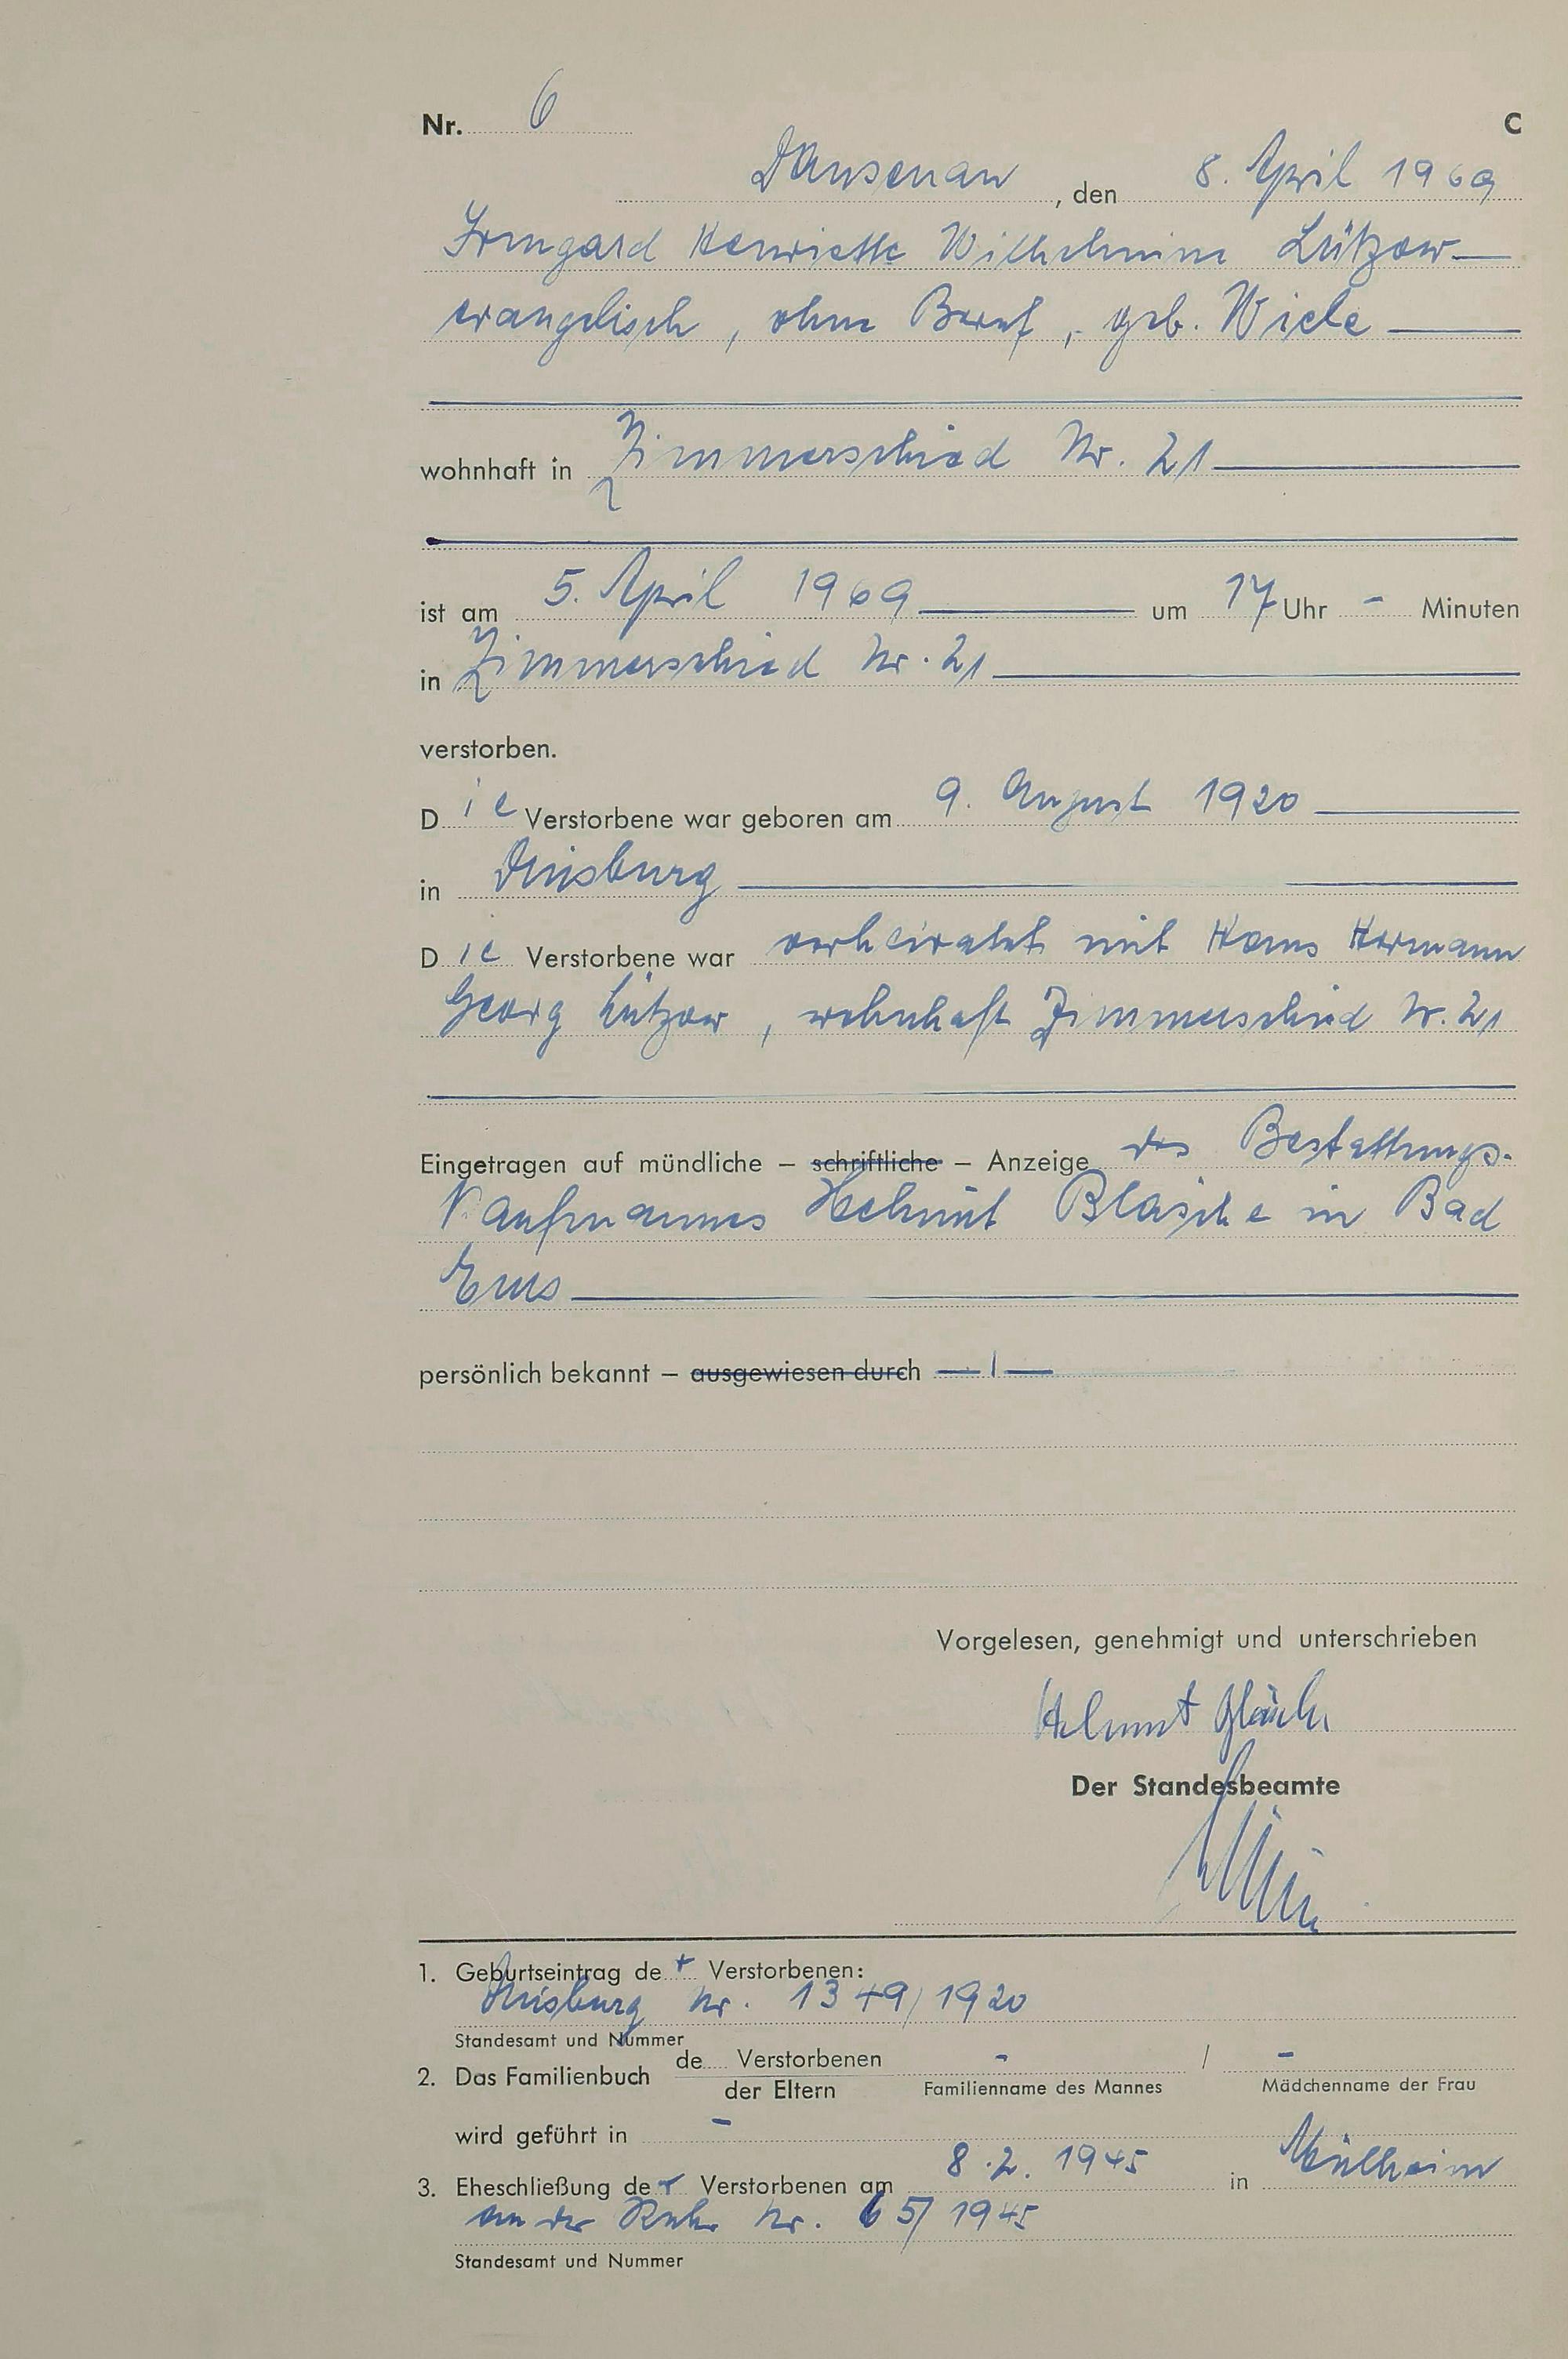 Nr. 6 C
Dausenau, den 8. April 1969
Irmgard Henriette Wilhelmine Lützow
evangelisch, ohne Beruf, geb. Wiele
wohnhaft in Zimmerschied Nr. 21
ist am 5. April 1969 um 17 Uhr - Minuten
in Zimmerschied Nr. 21
verstorben.
Die Verstorbene war geboren am 9. August 1920
in Duisburg
Die Verstorbene war verheiratet mit Hans Hermann
Georg Lützow, wohnhaft Zimmerschied Nr. 21
Eingetragen auf mündliche – schriftliche – Anzeige des Bestattungs-
Kaufmannes Helmut Bläsche in Bad
Ems
persönlich bekannt – ausgewiesen durch — / —
Vorgelesen, genehmigt und unterschrieben
Helmut
Der Standesbeamte
1. Geburtseintrag der Verstorbenen:
Duisburg Nr. 1349/1920
Standesamt und Nummer
2. Das Familienbuch de Verstorbenen - / -
der Eltern Familienname des Mannes Mädchenname der Frau
wird geführt in -
3. Eheschließung der Verstorbenen am 8.2.1945 in Mülheim
an der Ruhr Nr. 65/1945
Standesamt und Nummer